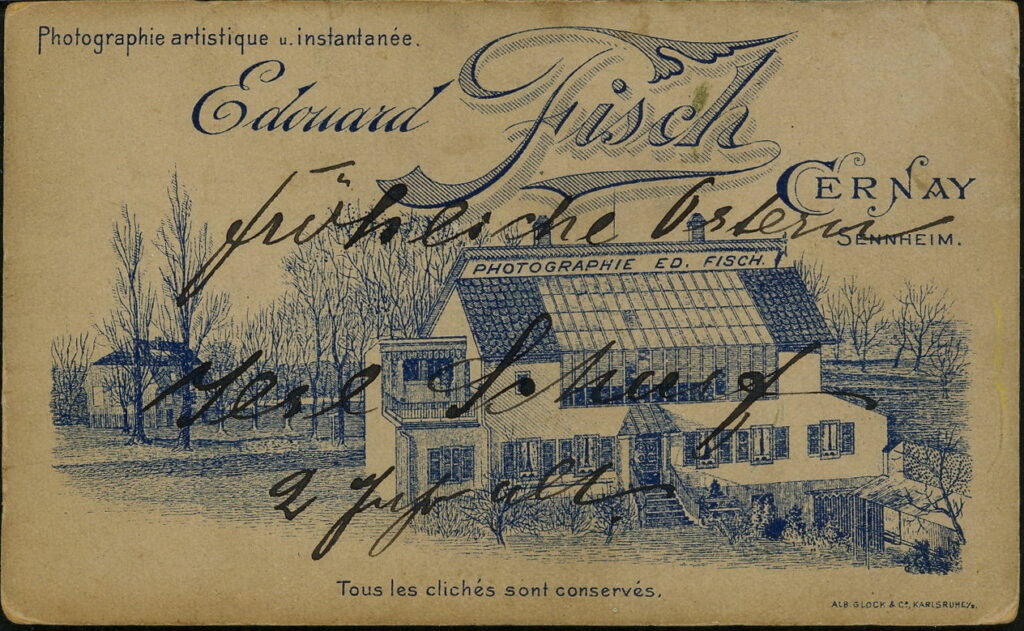 Photographie artistique u. instantanée.
Edouard Fisch
CERNAY
SENNHEIM.
fröhliche Ostern
PHOTOGRAPHIE ED. FISCH.
2 Jahr alt.
Tous les clichés sont conservés.
ALB. GLOCK & Cº, KARLSRUHE